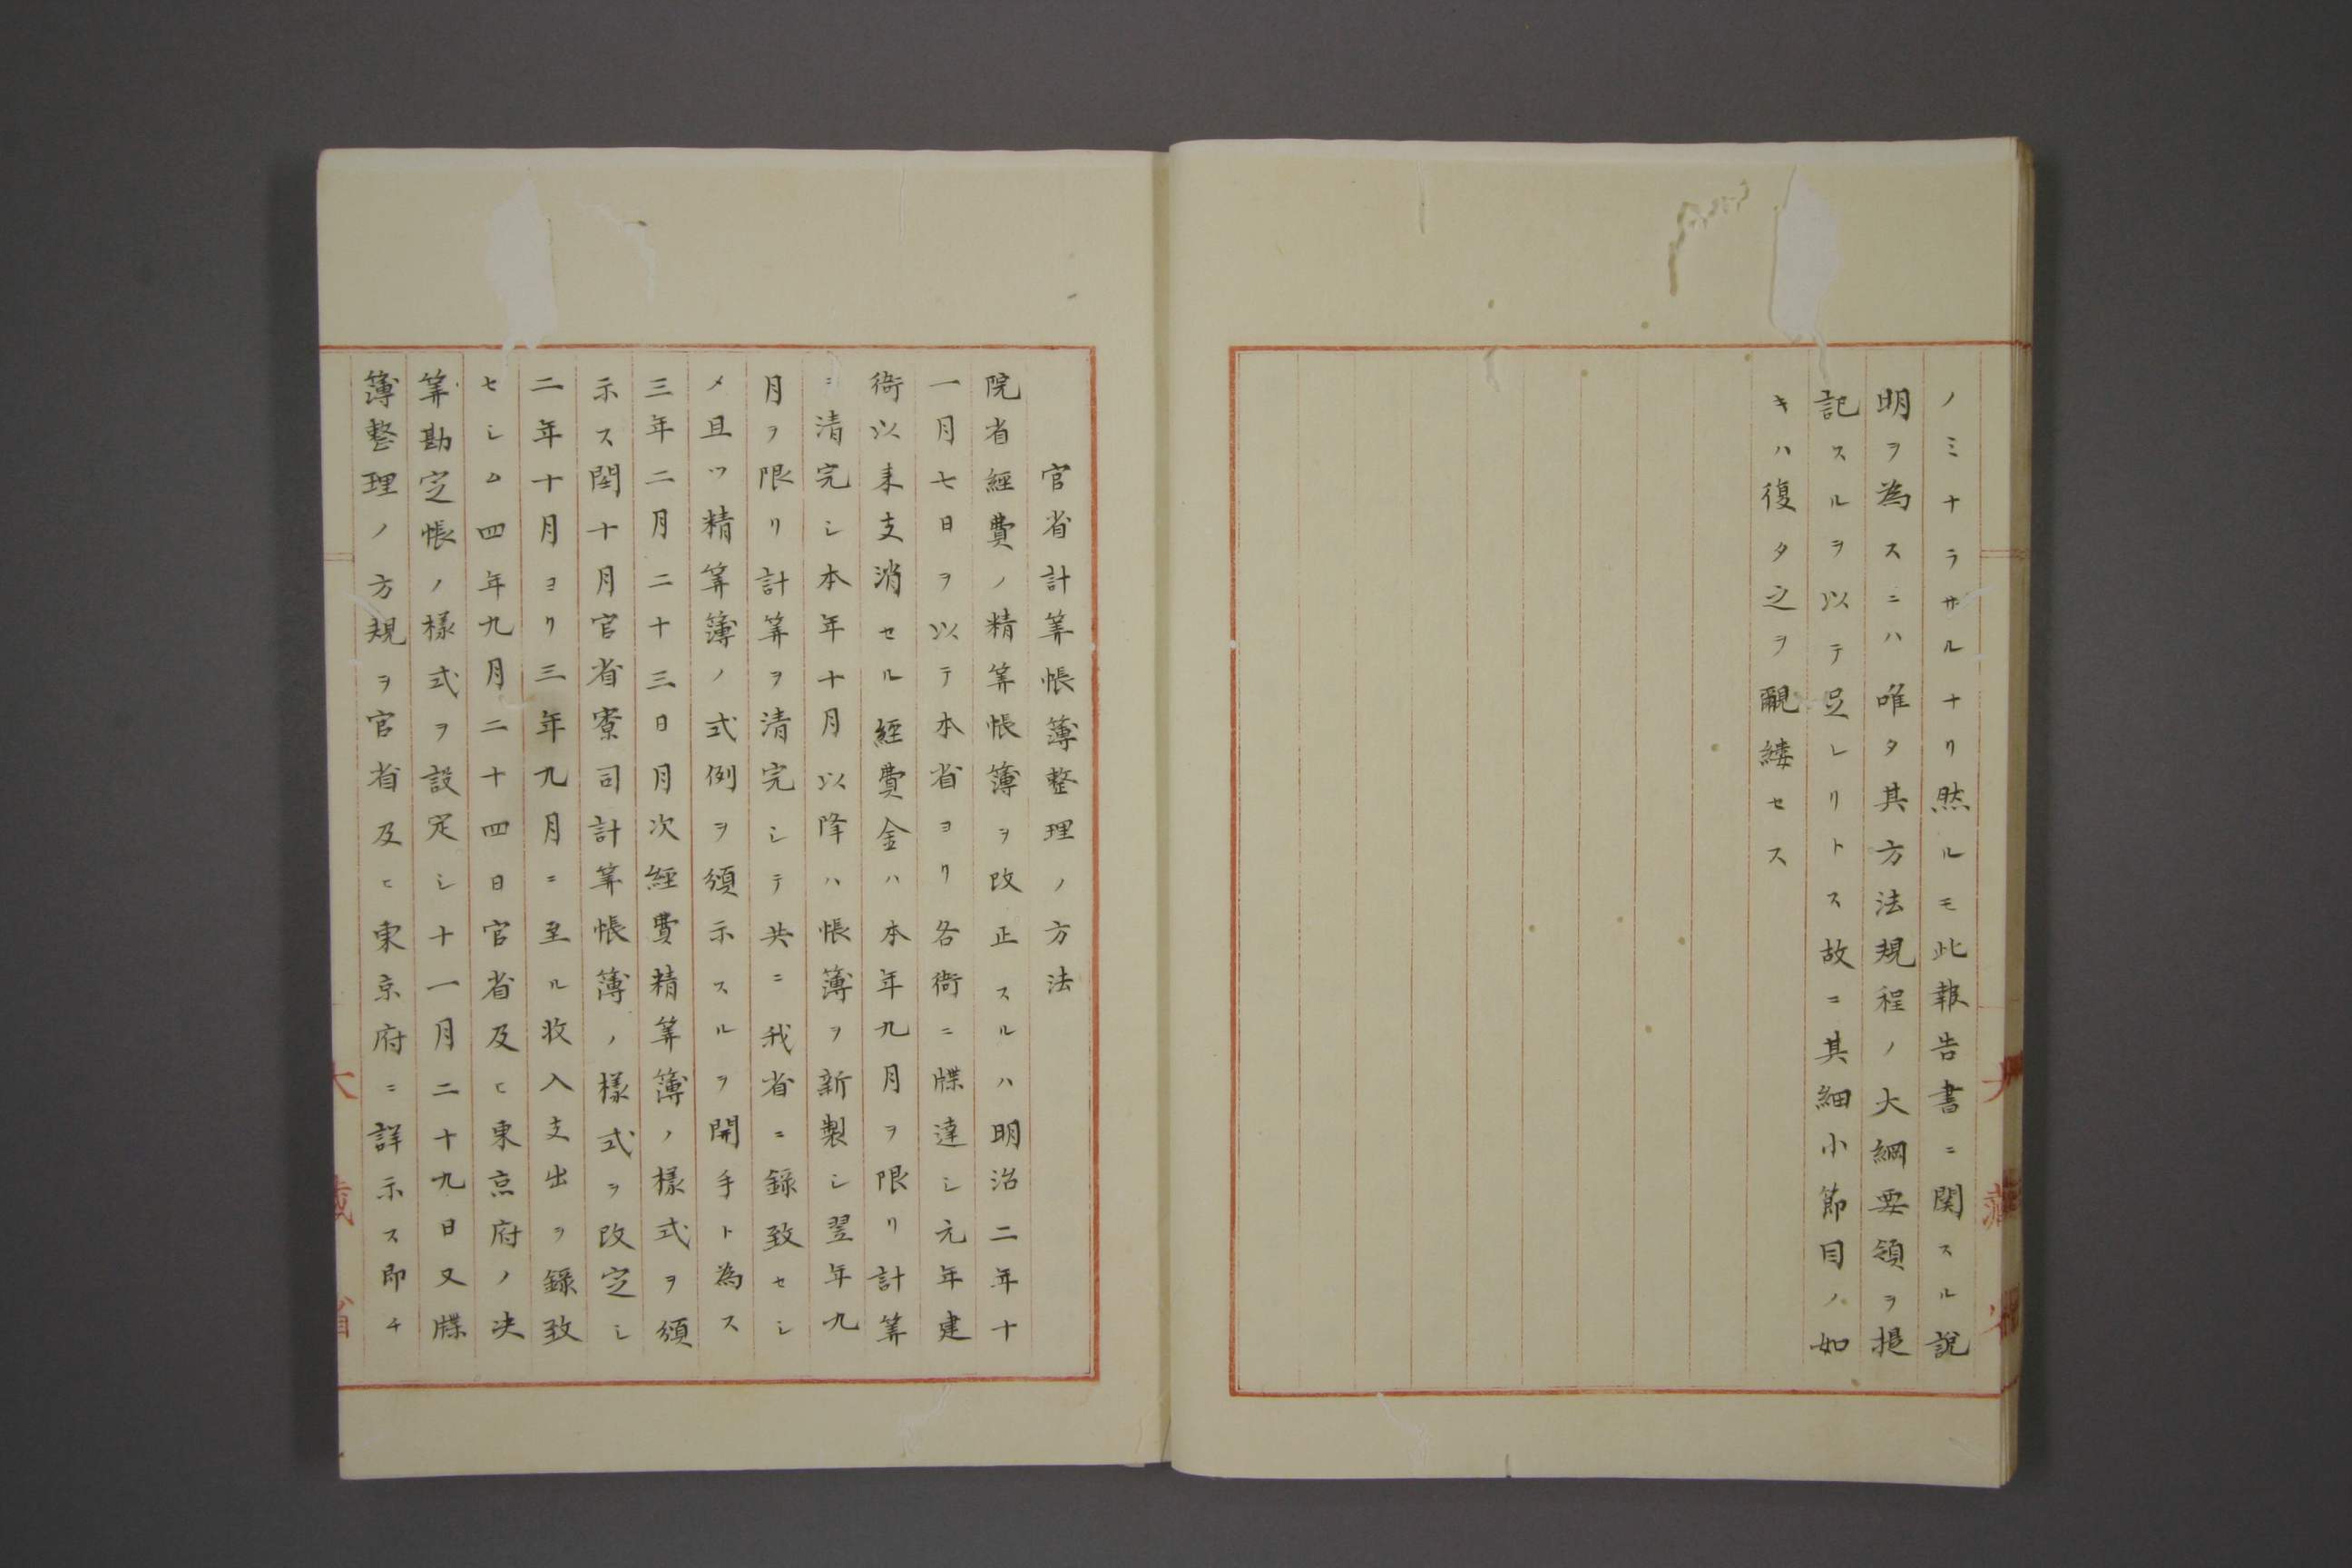 ノミナラサルナリ然ルモ此報告書ニ関スル說
明ヲ為スニハ唯タ其方法規程ノ大綱要領ヲ提
記スルヲ以テ足レリトス故ニ其細小節目ノ如
キハ復タ之ヲ覼縷セス
官省計筭帳簿整理ノ方法
院省經費ノ精筭帳簿ヲ改正スルハ明治二年十
一月七日ヲ以テ本省ヨリ各衙ニ牒達シ元年建
衙以来支消セル經費金ハ本年九月ヲ限リ計筭
ニ清完シ本年十月以降ハ帳簿ヲ新製シ翌年九
月ヲ限リ計筭ヲ清完シテ共ニ我省ニ錄致セシ
メ且ツ精筭簿ノ式例ヲ頒示スルヲ開手ト為ス
三年二月二十三日月次經費精筭簿ノ樣式ヲ頒
示ス閏十月官省寮司計筭帳簿ノ樣式ヲ改定シ
二年十月ヨリ三年九月ニ至ル收入支出ヲ錄致
セシム四年九月二十四日官省及ヒ東京府ノ决
筭勘定帳ノ樣式ヲ設定シ十一月二十九日又牒
簿整理ノ方規ヲ官省及ヒ東京府ニ詳示ス即チ
大藏省